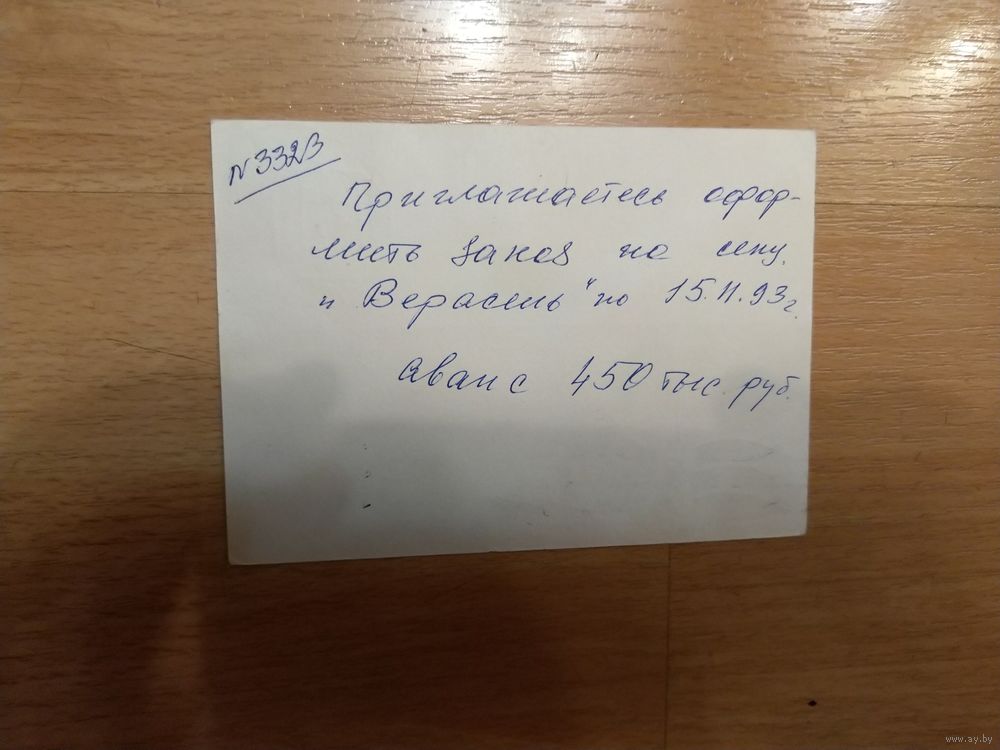 N 3323
Приглашаетесь офор-
мить заказ на секц.
"Верасень" по 15.11.93г.
аванс 450 тыс. руб.
www.ay.by